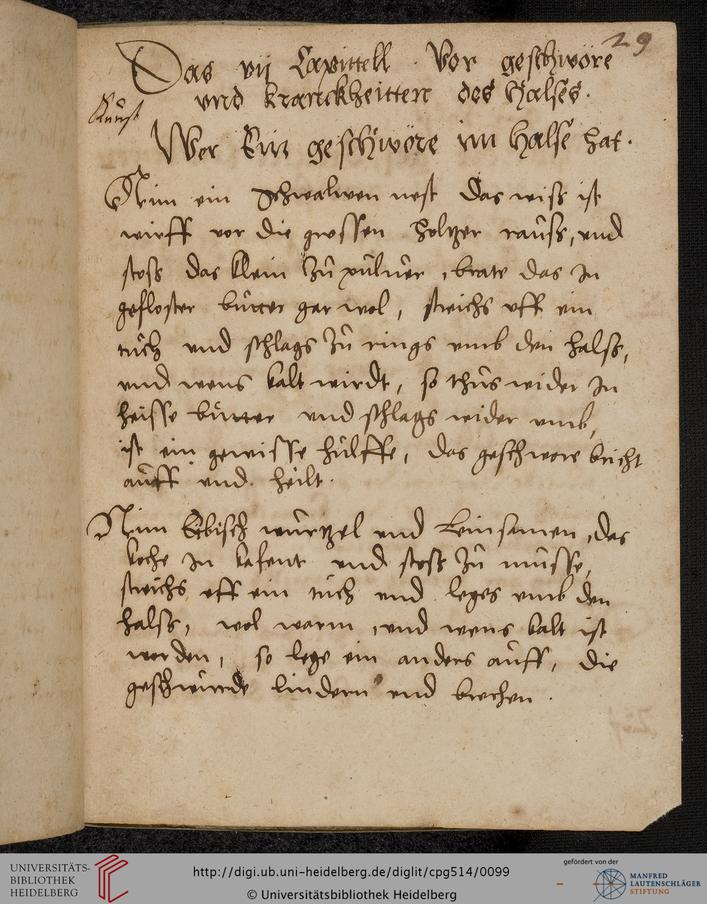 29
Das vij Capittell. Vor geschwöre
vnd kranckheitten des halses.
Kunst
Wer Ein geschwöre im halse hat.
Nim ein schwalwen nest das wiß ist
wirff vor die grossen holtzer rauß, vnd
stoß das klein zu puluer, brate das in
gefloster butter gar wol, streichs vff ein
tuch vnd schlags zu rings vmb den halß,
vnd wens kalt wirdt, so thus wider in
heisse butter vnd schlags wider vmb,
ist ein gewisse hulffe, das geschwore bricht
auff vnd heilt.
Nim Eibisch wurtzel vnd Leinsamen, das
koche in kofent vnd stoß zu musse,
streichs vff ein tuch vnd leges vmb den
halß, wol warm, vnd wens kalt ist
worden, so lege ein anders auff, die
geschwunde lindern vnd brechen.
UNIVERSITÄTS-
BIBLIOTHEK
HEIDELBERG
http://digi.ub.uni-heidelberg.de/diglit/cpg514/0099
© Universitätsbibliothek Heidelberg
gefördert von der
MANFRED
LAUTENSCHLÄGER
STIFTUNG